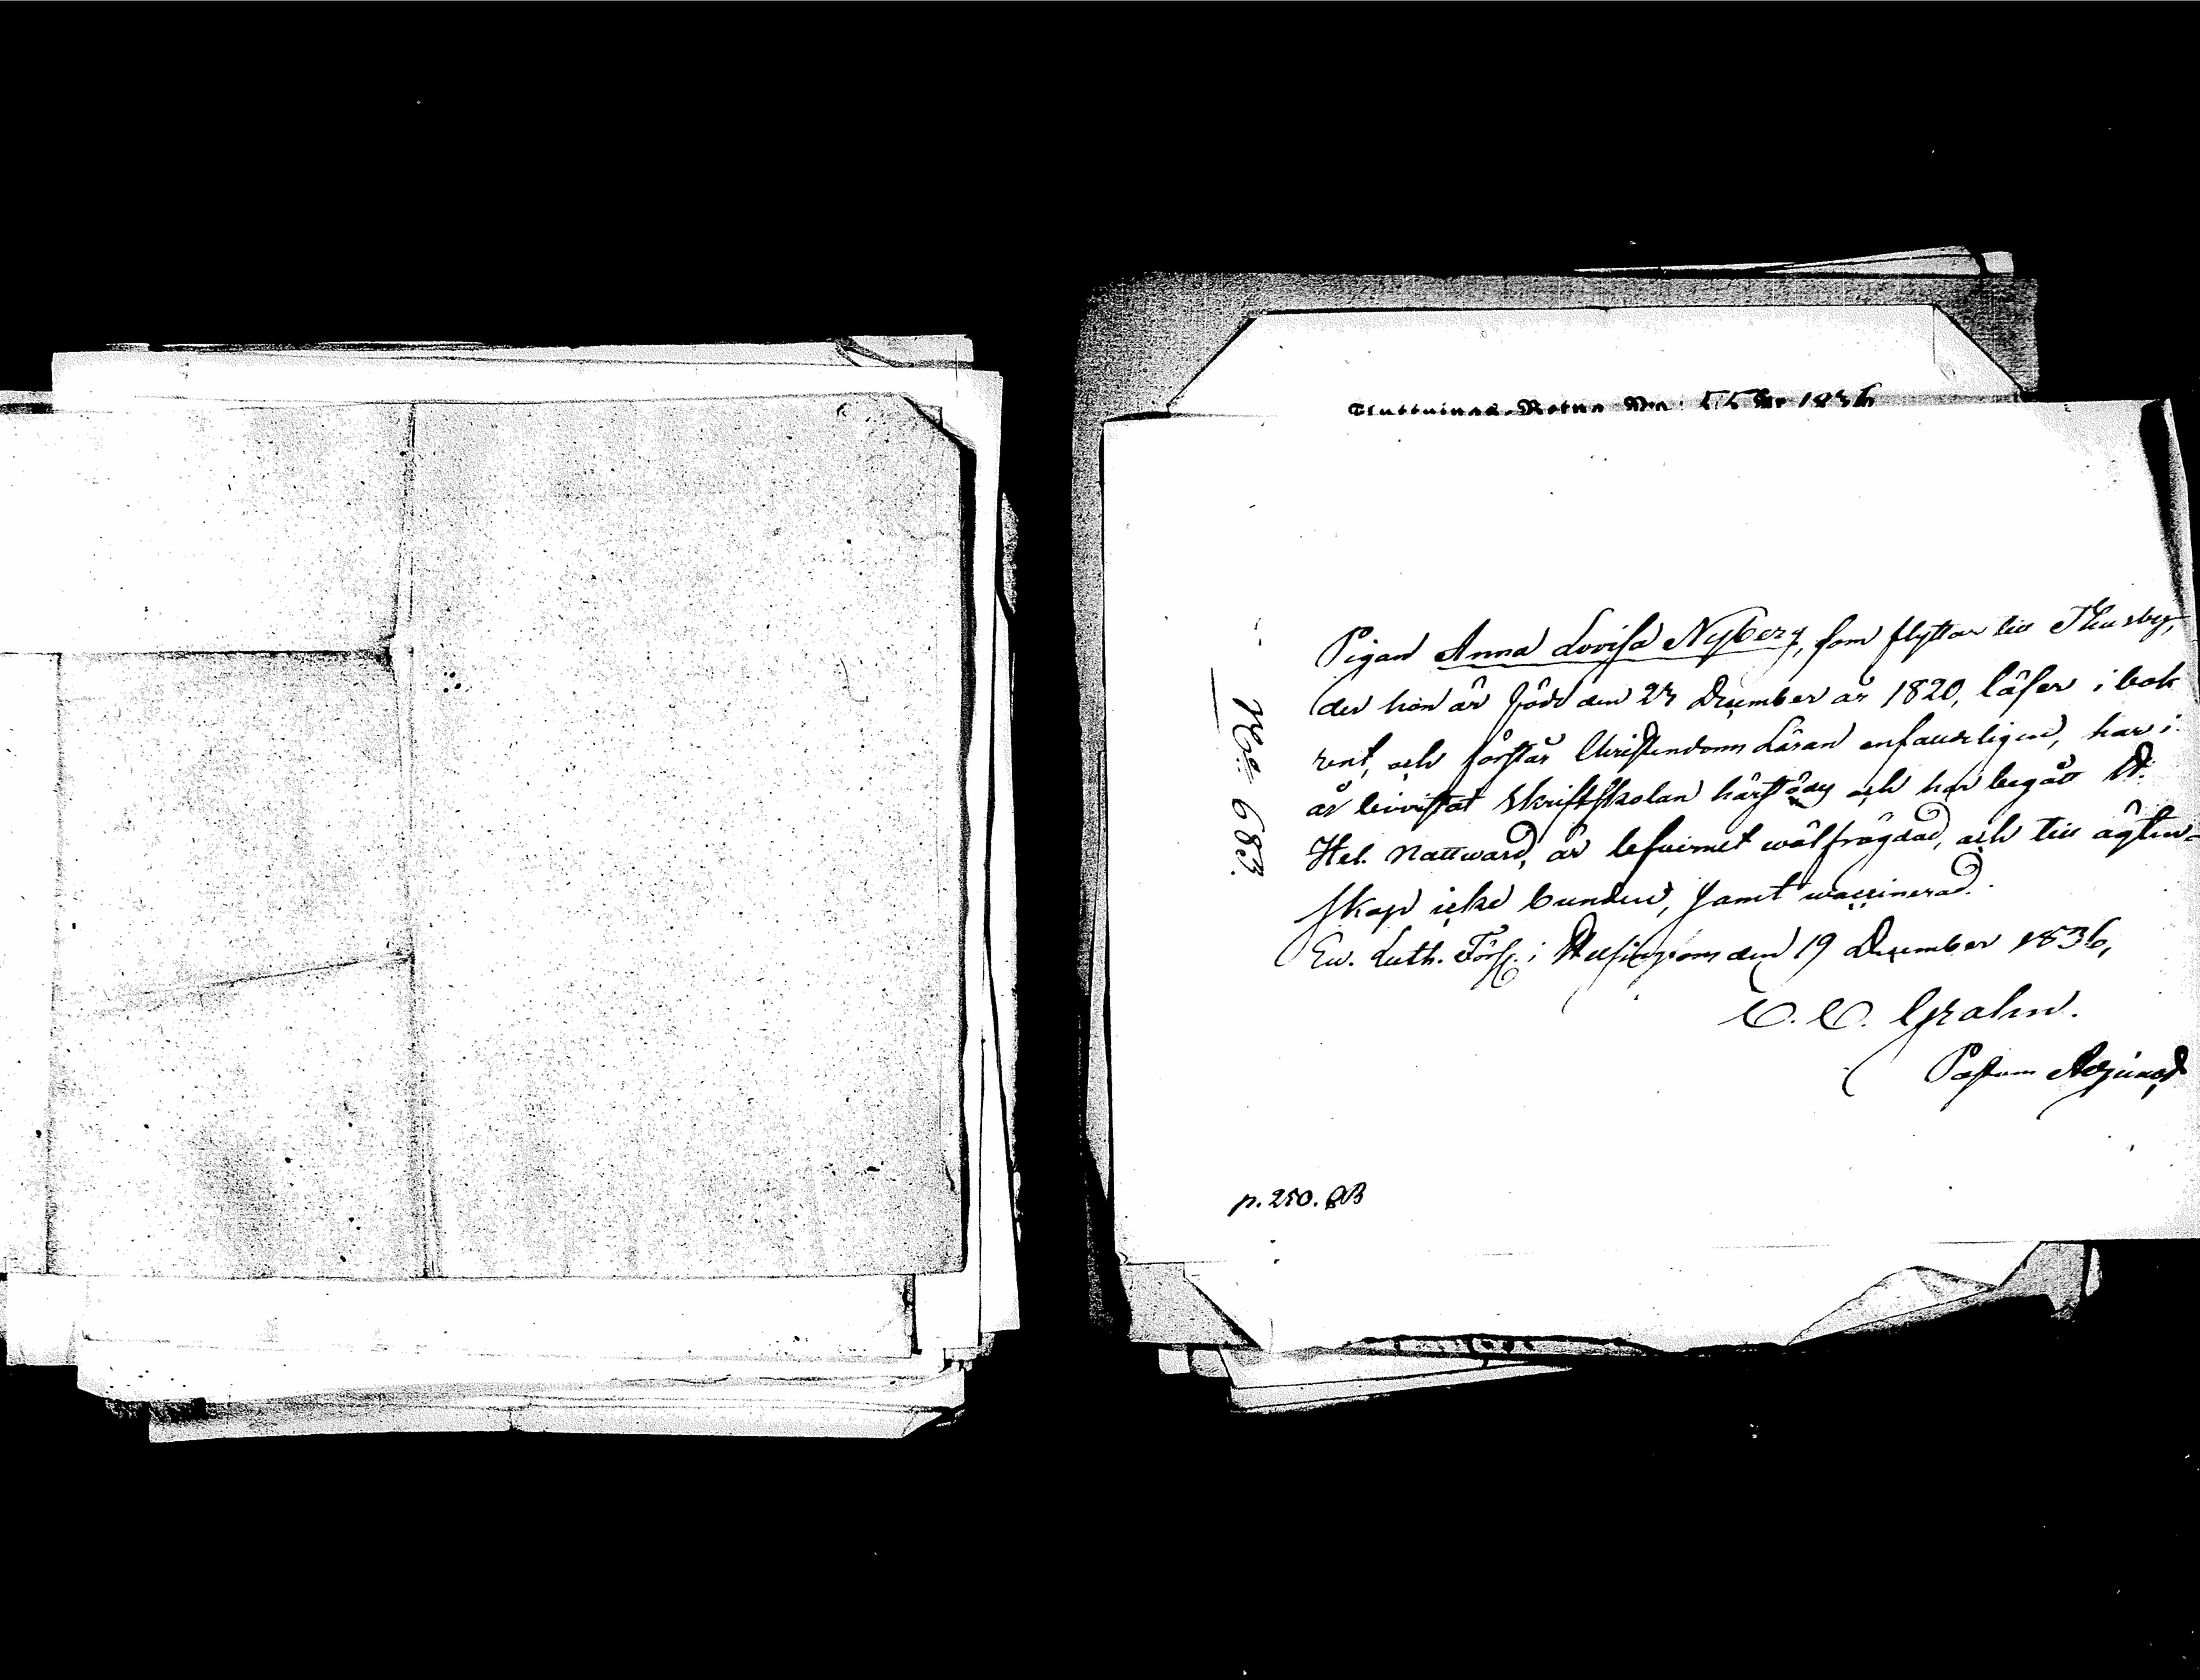 Flyttnings-Betyg No: 55 År 1836
Pigan Anna Lovisa Nyberg, som flyttar till Thusby,
der hon är född den 23 December år 1820, läser i bok
rent, och förstår Christendoms Läran enfaldeligen, har i
år bevistat Skriftskolan härstädes och har begått D.
Hel. Nattward, är lefvernet wälfrägdad, och till ägten=
skap icke bunden, samt waccinerad.
Ew. Luth. Förs. i Helsingfors den 19 December 1836,
C. C. Grahn.
Pastors Adjunct
No 683.
p. 250. BB